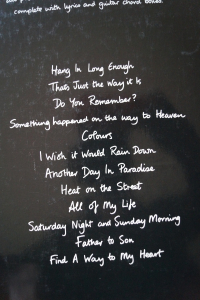 complete with lyrics and guitar chord boxes.
Hang In Long Enough
Thats Just the Way it Is
Do You Remember?
Something happened on the way to Heaven
Colours
I Wish it Would Rain Down
Another Day In Paradise
Heat on the Street
All of My Life
Saturday Night and Sunday Morning
Father to Son
Find A Way to My Heart